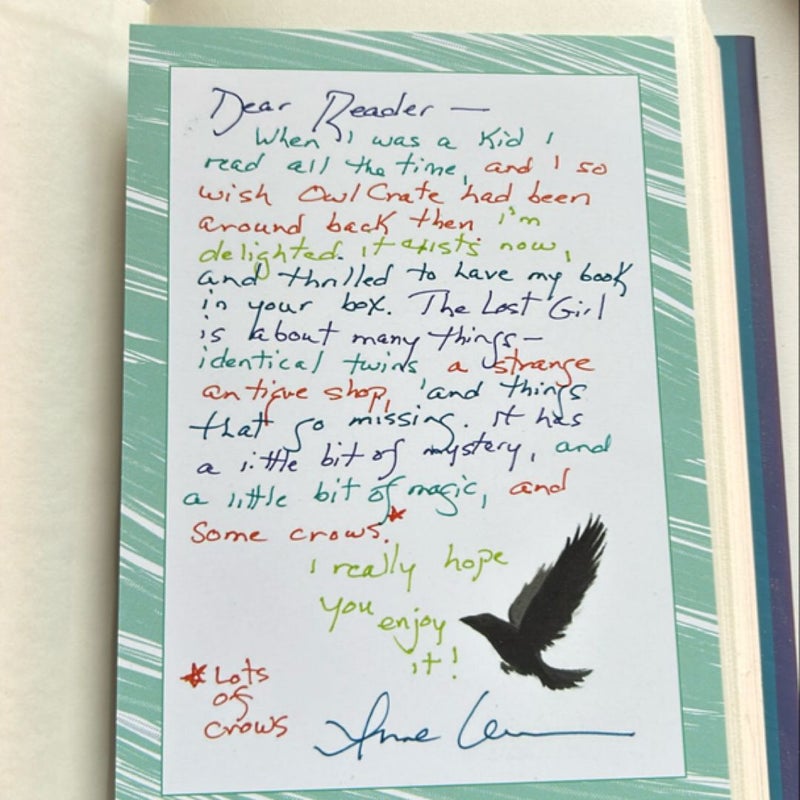 Dear Reader —
When I was a kid I
read all the time, and I so
wish OwlCrate had been
around back then I'm
delighted. it exists now,
and thrilled to have my book
in your box. The Lost Girl
is about many things—
identical twins a strange
antique shop, and things
that go missing. It has
a little bit of mystery, and
a little bit of magic, and
some crows.*
I really hope
you enjoy
it!
* Lots
of
crows
Anne